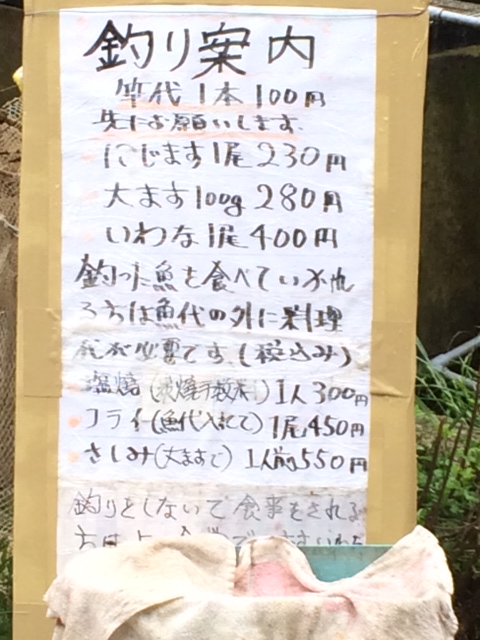 釣り案内
竿代1本100円
先にお願いします
にじます1尾230円
大ます100g280円
いわな1尾400円
釣った魚を食べていかれ
る方は魚代の外に料理
代が必要です。(税込み)
塩焼 1人300円
フライ(魚代入れて)1尾450円
さしみ(大ますで)1人前550円
釣りをしないで食事をされる
方は